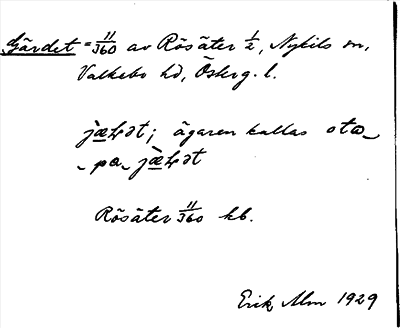 Gärdet = 11/360 av Rösäter 1/2, Nykils sn,
Valkebo hd, Österg. l.
jæḷət; ägaren kallas ota
pa jæḷət
Rösäter 11/360 kb.
Erik Alm 1929